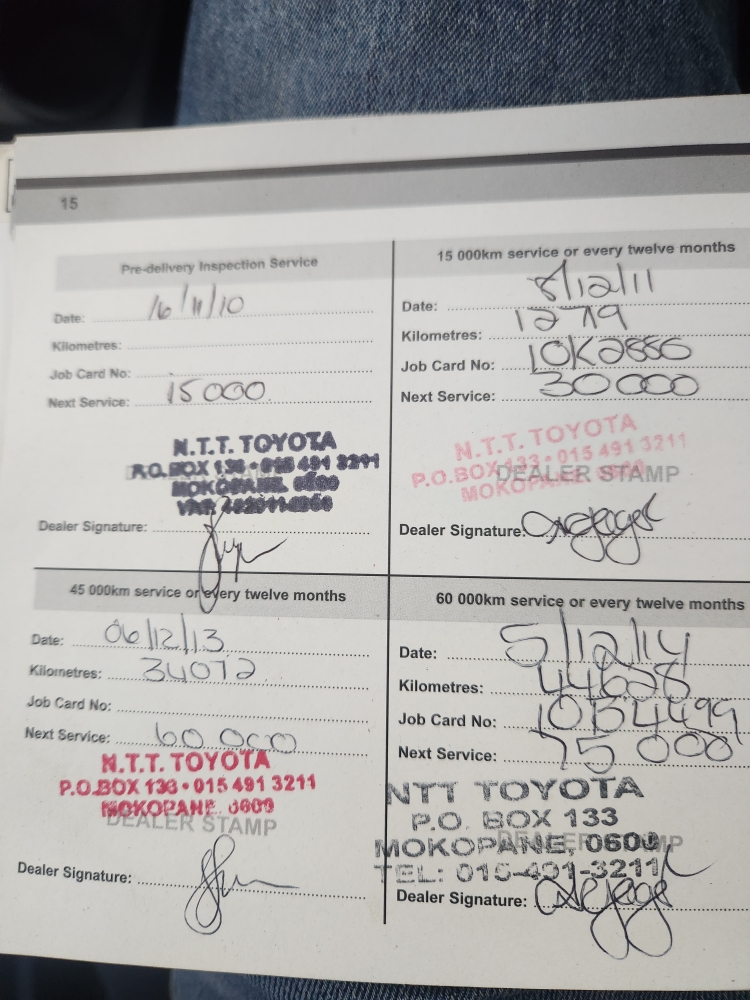 15
Pre-delivery Inspection Service
Date: 16/11/10
Kilometres:
Job Card No:
Next Service: 15 000
N.T.T. TOYOTA
P.O. BOX 133 • 015 491 3211
MOKOPANE. 0600
Dealer Signature:
15 000km service or every twelve months
Date: 8/12/11
Kilometres:
Job Card No:
Next Service: 30 000
N.T.T. TOYOTA
P.O.BOX 133 • 015 491 3211
MOKOPANE. 0600
DEALER STAMP
Dealer Signature:
45 000km service or every twelve months
Date: 06/12/13
Kilometres: 34072
Job Card No:
Next Service: 60 000
N.T.T. TOYOTA
P.O.BOX 133 • 015 491 3211
MOKOPANE. 0600
DEALER STAMP
Dealer Signature:
60 000km service or every twelve months
Date: 5/12/14
Kilometres: 44628
Job Card No: 10B4499
Next Service: 75 000
NTT TOYOTA
P.O. BOX 133
MOKOPANE, 0600
DEALER STAMP
TEL: 015-491-3211
Dealer Signature: